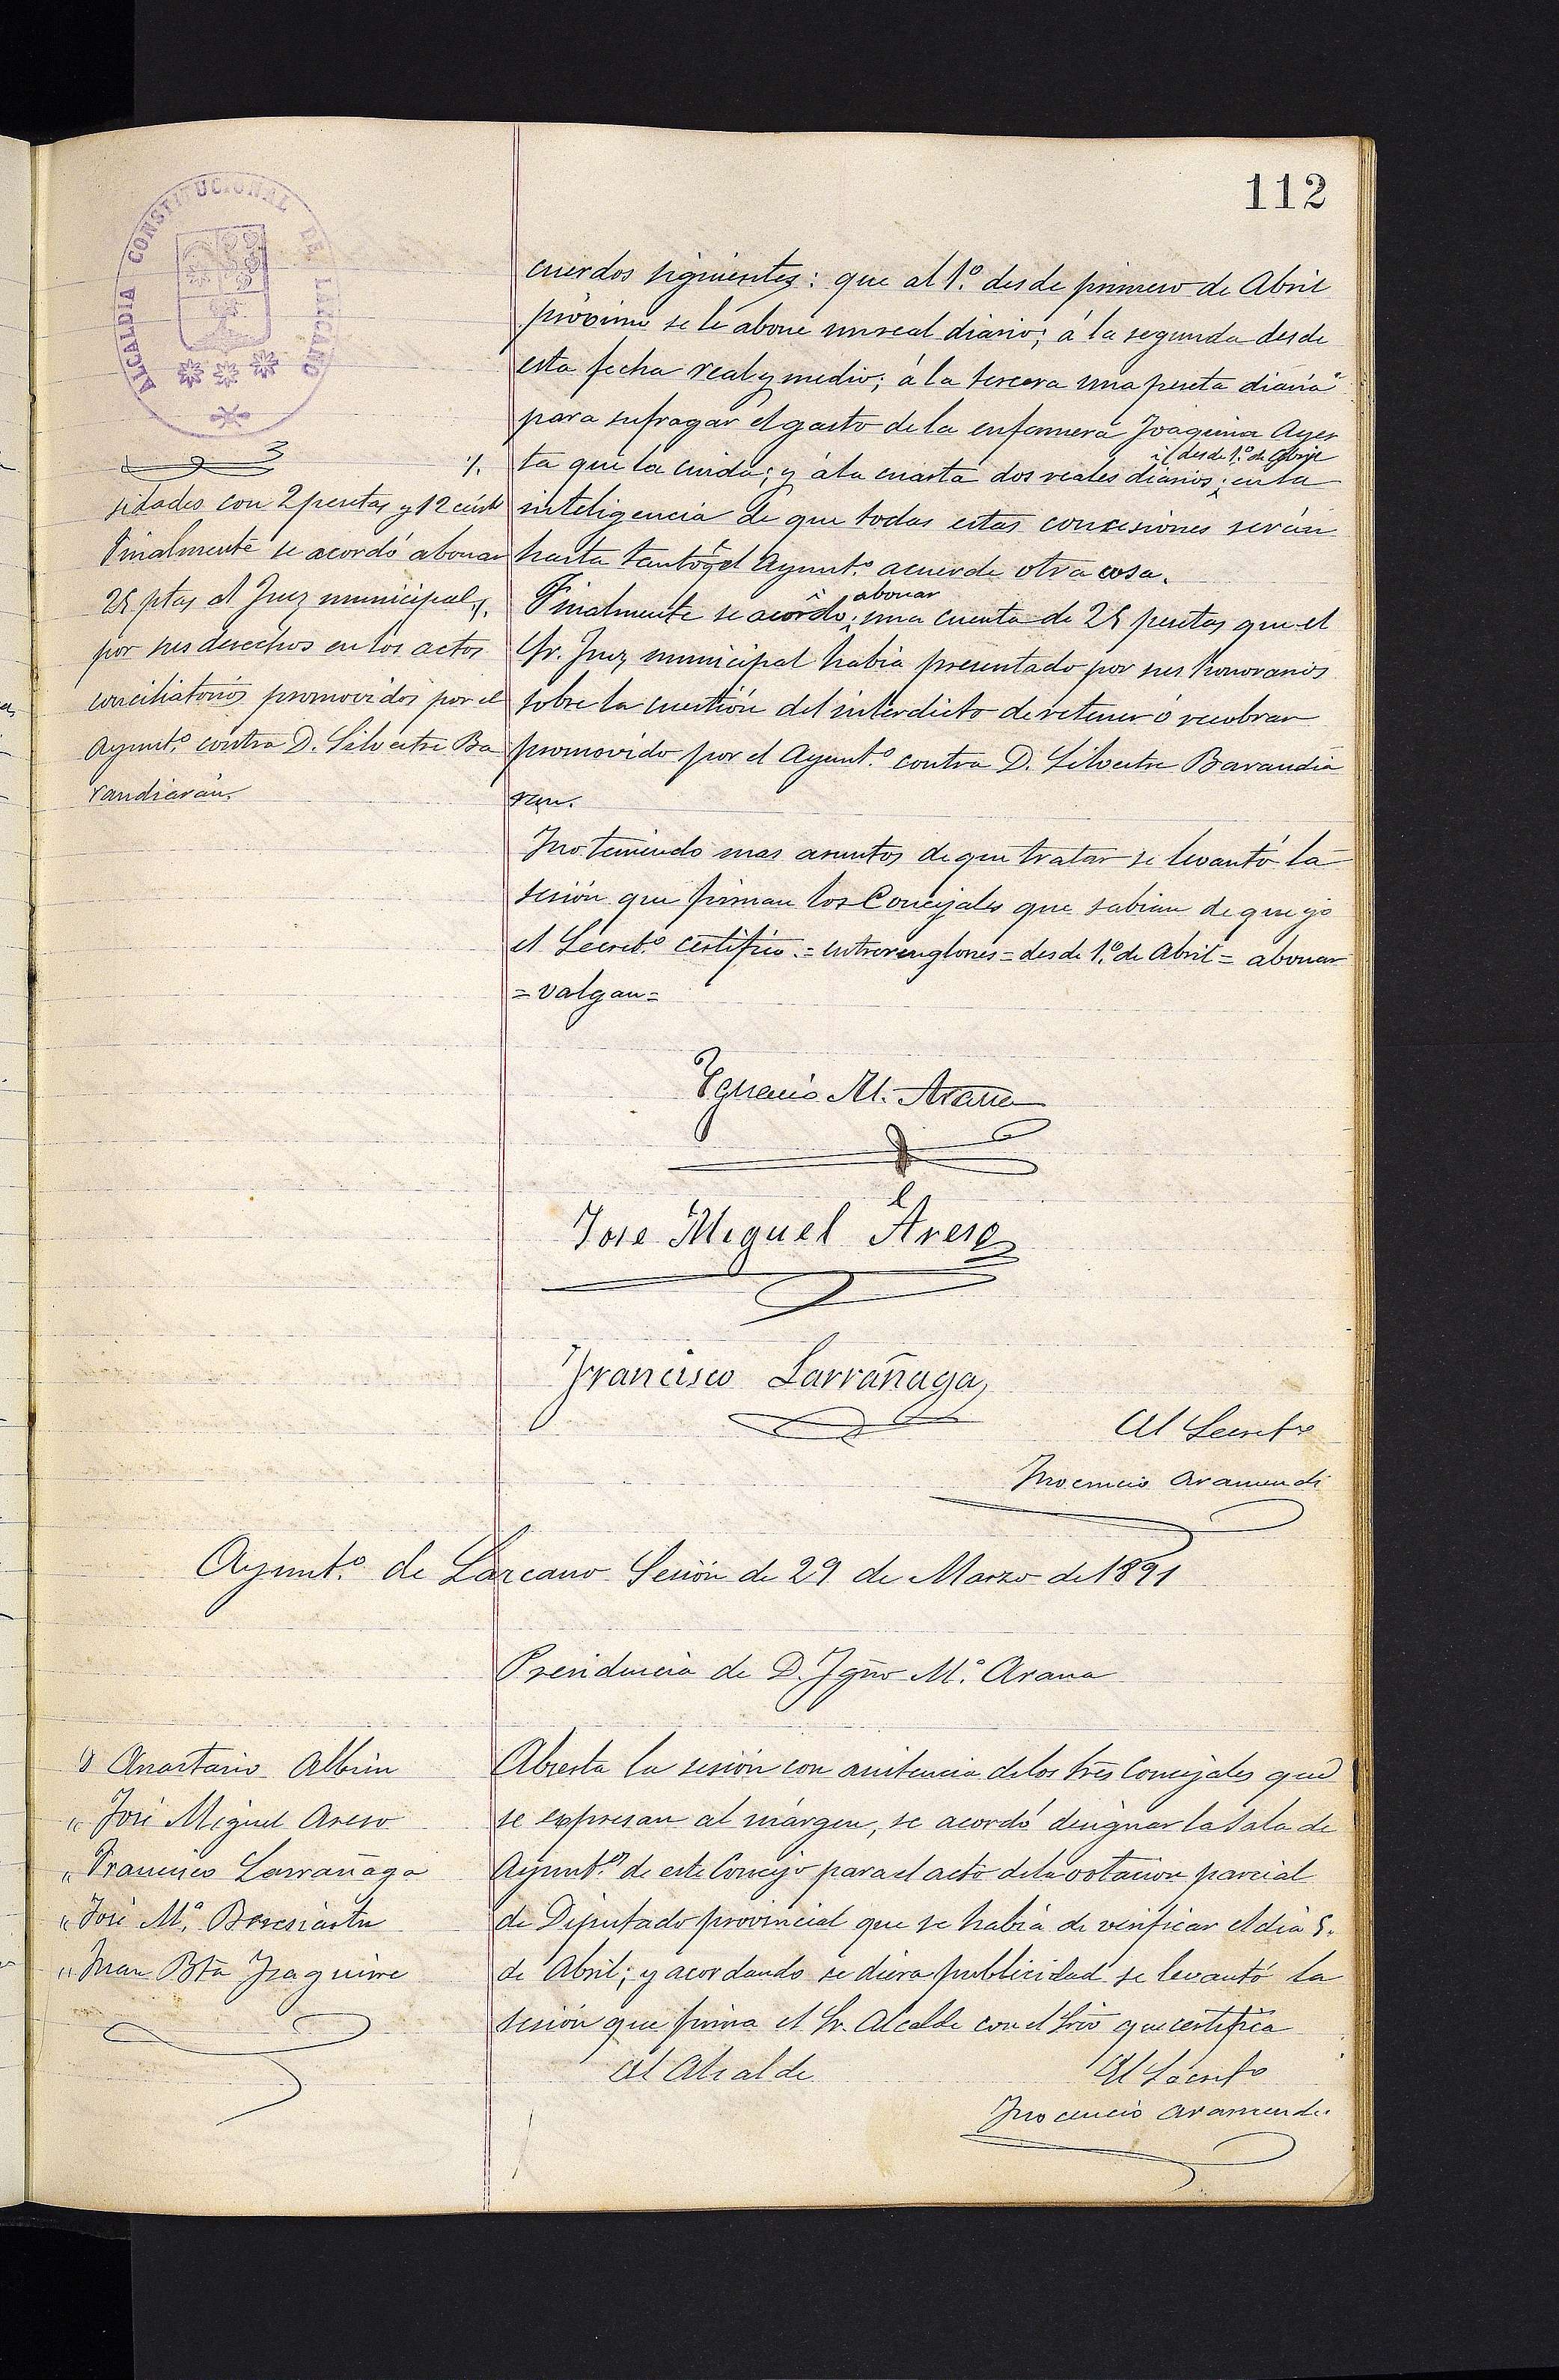 112
ALCALDIA CONSTITUCIONAL DE LAZCANO
cuerdos siguientes: que al 1.º desde primero de Abril
próximo se le abone un real diario; á la segunda desde
esta fecha real y medio; á la tercera una peseta diaria
para sufragar el gasto de la enfermera Joaquina Ayes
desde 1.º de Abril
ta que la cuida; y á la cuarta dos reales diarios; en la
inteligencia de que todas estas concesiones serán
hasta tanto q el Ayunt.º acuerde otra cosa.
abonar
Finalmente se acordo una cuenta de 25 pesetas que el
Sr. Juez municipal habia presentado por sus honorarios
sobre la cuestión del interdicto de retener ó recobrar
promovido por el Ayunt.º contra D. Silvestre Barandia
ran.
Y no teniendo mas asuntos de que tratar se levantó la
sesión que firman los Concejales que sabian de que yo
el Secret.º certifico.= entrerenglones = desde 1.º de Abril = abonar
= valgan =
sidades con 2 pesetas y 12 cénts
Finalmente se acordó abonar
25 ptas al Juez municipal
por sus derechos en los actos
conciliatorios promovidos por el
Ayunt.º contra D. Silvestre Ba
randiarán.
Ygnacio M. Arana
Jose Miguel Areso
Francisco Larrañaga
El Secret.º
Inocencio Aramendi
Ayunt.º de Lazcano Sesión de 29 de Marzo de 1891
Presidencia de D. Igño M.ª Arana
D Anastasio Albin
" José Miguel Areso
" Francisco Larrañaga
" José M.ª Beresiartu
" Juan Bta Yzaguirre
Abierta la sesión con asistencia de los tres Concejales que
se expresan al márgen, se acordó designar la Sala de
Ayunt.º de este Concejo para el acto de la votacion parcial
de Diputado provincial que se habia de verificar el dia 5.
de Abril; y acordando se diera publicidad se levantó la
sesión que firma el Sr. Alcalde con el Srio que certifica
El Alcalde
El Secret.º
Inocencio Aramendi